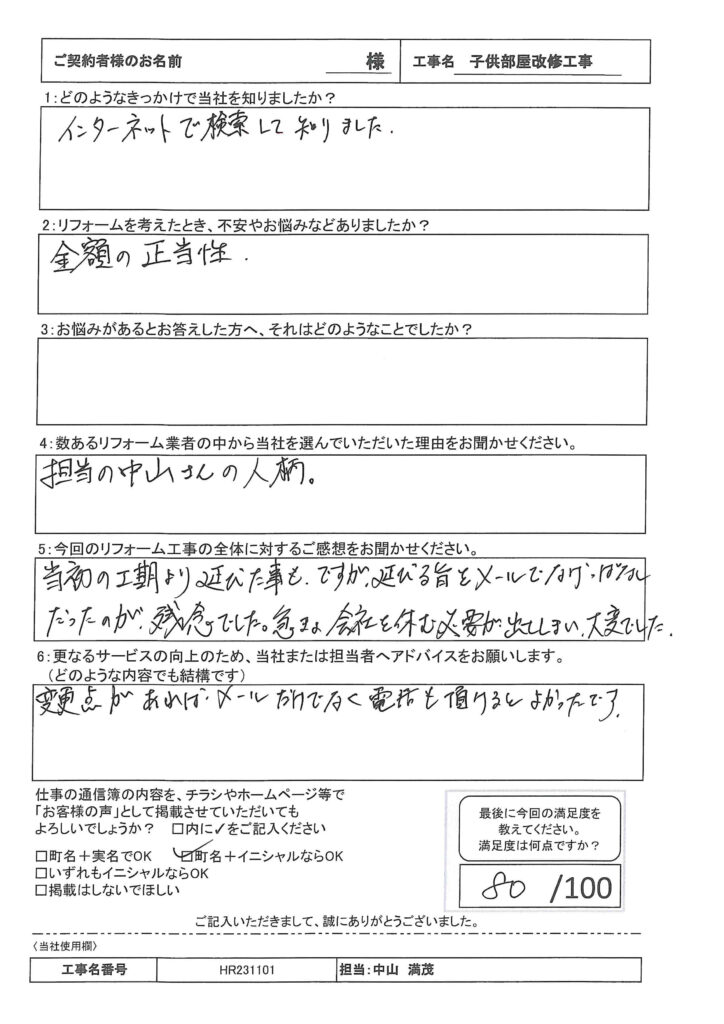 ご契約者様のお名前 様 工事名 子供部屋改修工事
1:どのようなきっかけで当社を知りましたか?
インターネットで検索して知りました.
2:リフォームを考えたとき、不安やお悩みなどありましたか?
金額の正当性.
3:お悩みがあるとお答えした方へ、それはどのようなことでしたか?
4:数あるリフォーム業者の中から当社を選んでいただいた理由をお聞かせください。
担当の中山さんの人柄。
5:今回のリフォーム工事の全体に対するご感想をお聞かせください。
当初の工期より延びた事も.ですが、延びる旨をメールでなげっぱなし
だったのが、残念でした。急きょ会社を休む必要が出てしまい、大変でした.
6:更なるサービスの向上のため、当社または担当者へアドバイスをお願いします。
(どのような内容でも結構です)
変更点があれば、メールだけでなく電話も頂けるとよかったです.
仕事の通信簿の内容を、チラシやホームページ等で
「お客様の声」として掲載させていただいても
よろしいでしょうか? □内に✓をご記入ください
□町名+実名でOK ☑町名+イニシャルならOK
□いずれもイニシャルならOK
□掲載はしないでほしい
最後に今回の満足度を
教えてください。
満足度は何点ですか?
80 /100
ご記入いただきまして、誠にありがとうございました。
〈当社使用欄〉
工事名番号 HR231101 担当:中山 満茂